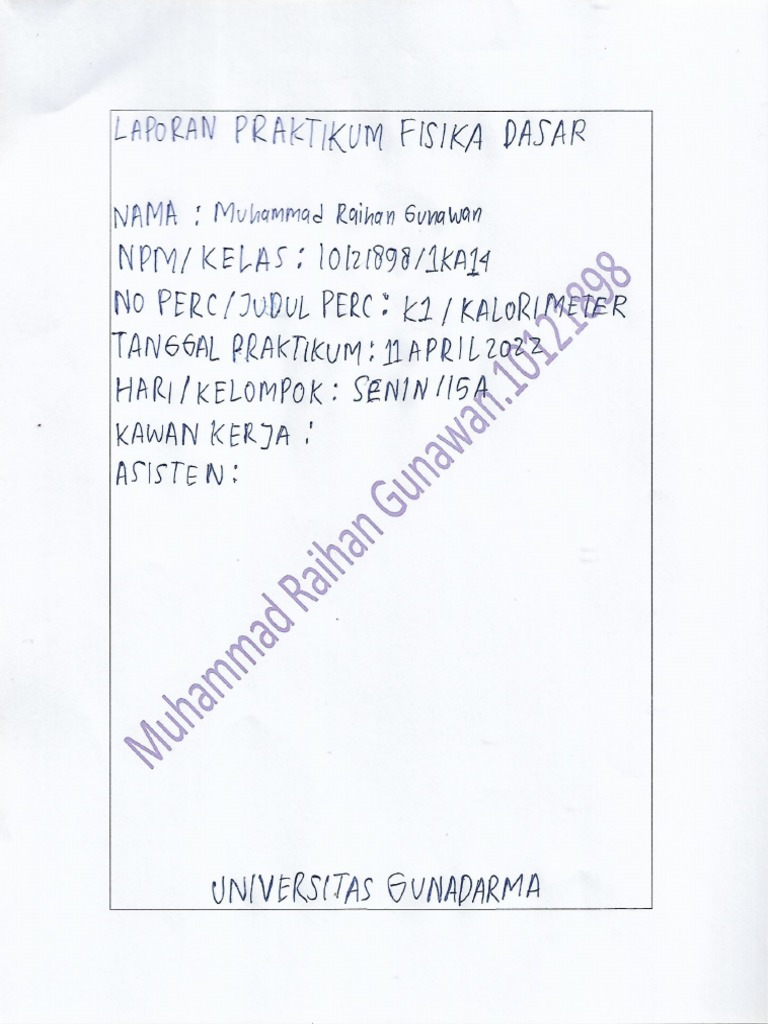 LAPORAN PRAKTIKUM FISIKA DASAR
NAMA : Muhammad Raihan Gunawan
NPM/KELAS : 10121898/1KA14
NO PERC/JUDUL PERC : K1/KALORIMETER
TANGGAL PRAKTIKUM : 11 APRIL 2022
HARI/KELOMPOK : SENIN/15A
KAWAN KERJA :
ASISTEN :
Muhammad Raihan Gunawan.10121898
UNIVERSITAS GUNADARMA